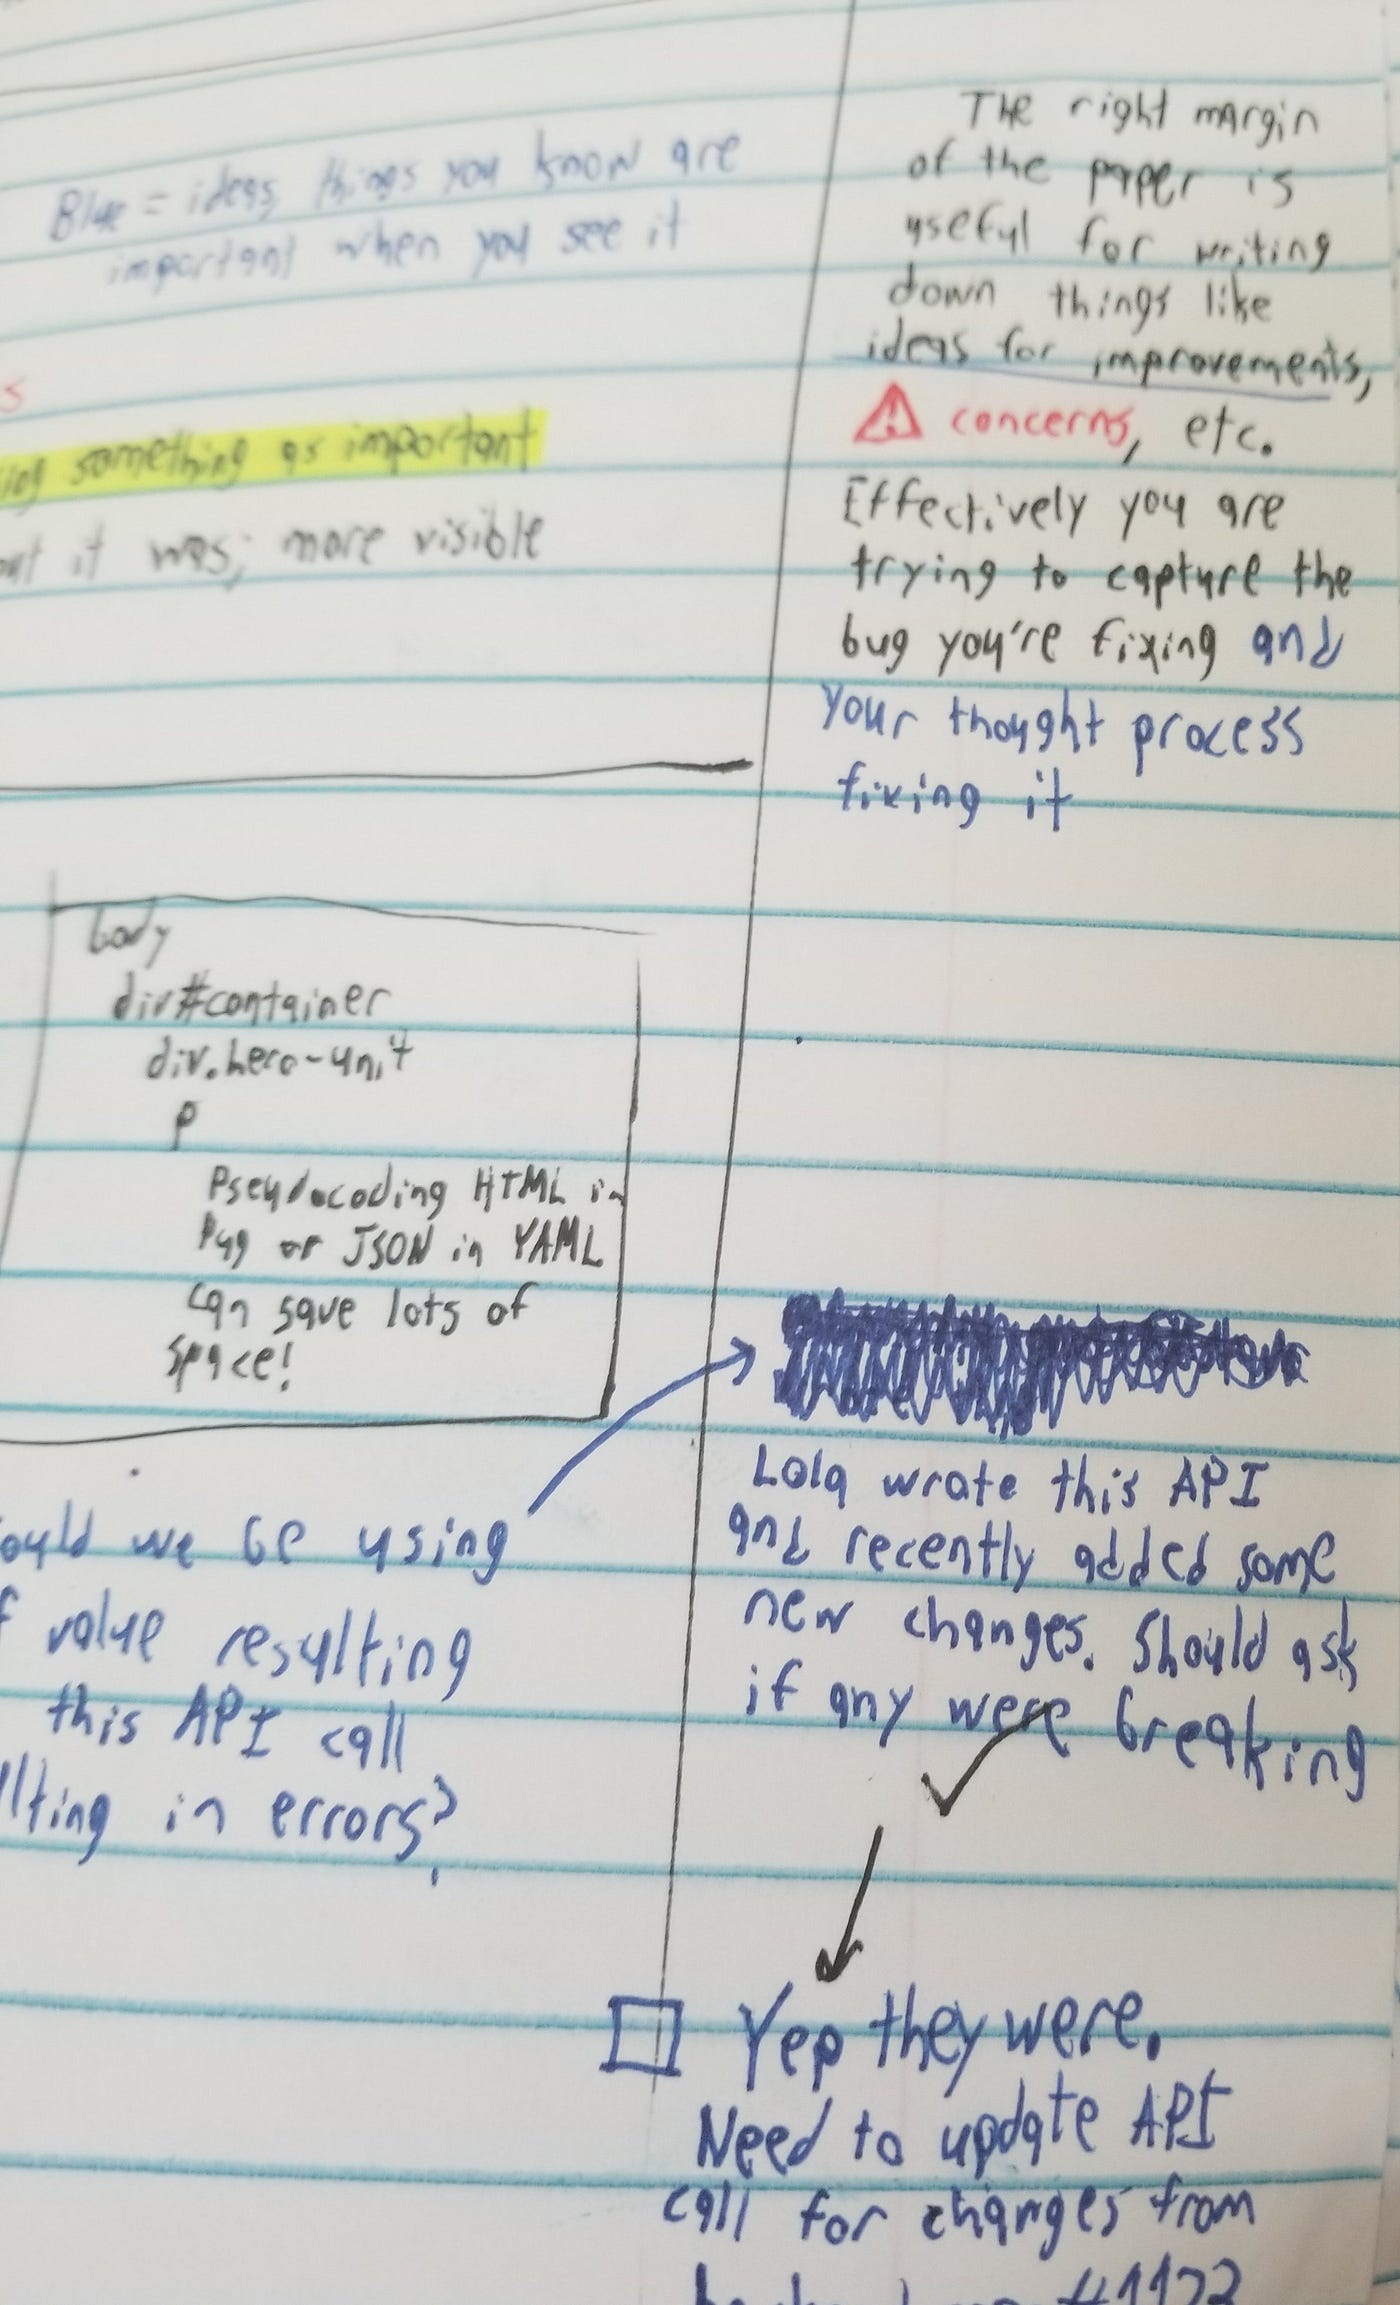 Blue = ideas, things you know are
important when you see it
s
something as important
it was; more visible
body
div#container
div.hero-unit
p
Pseudocoding HTML in
Pug or JSON in YAML
can save lots of
space!
we be using
value resulting
this API call
in errors?
The right margin
of the paper is
useful for writing
down things like
ideas for improvements,
concerns, etc.
Effectively you are
trying to capture the
bug you're fixing and
your thought process
fixing it
Lola wrote this API
and recently added some
new changes. Should ask
if any were breaking
Yep they were.
Need to update API
call for changes from
#1123